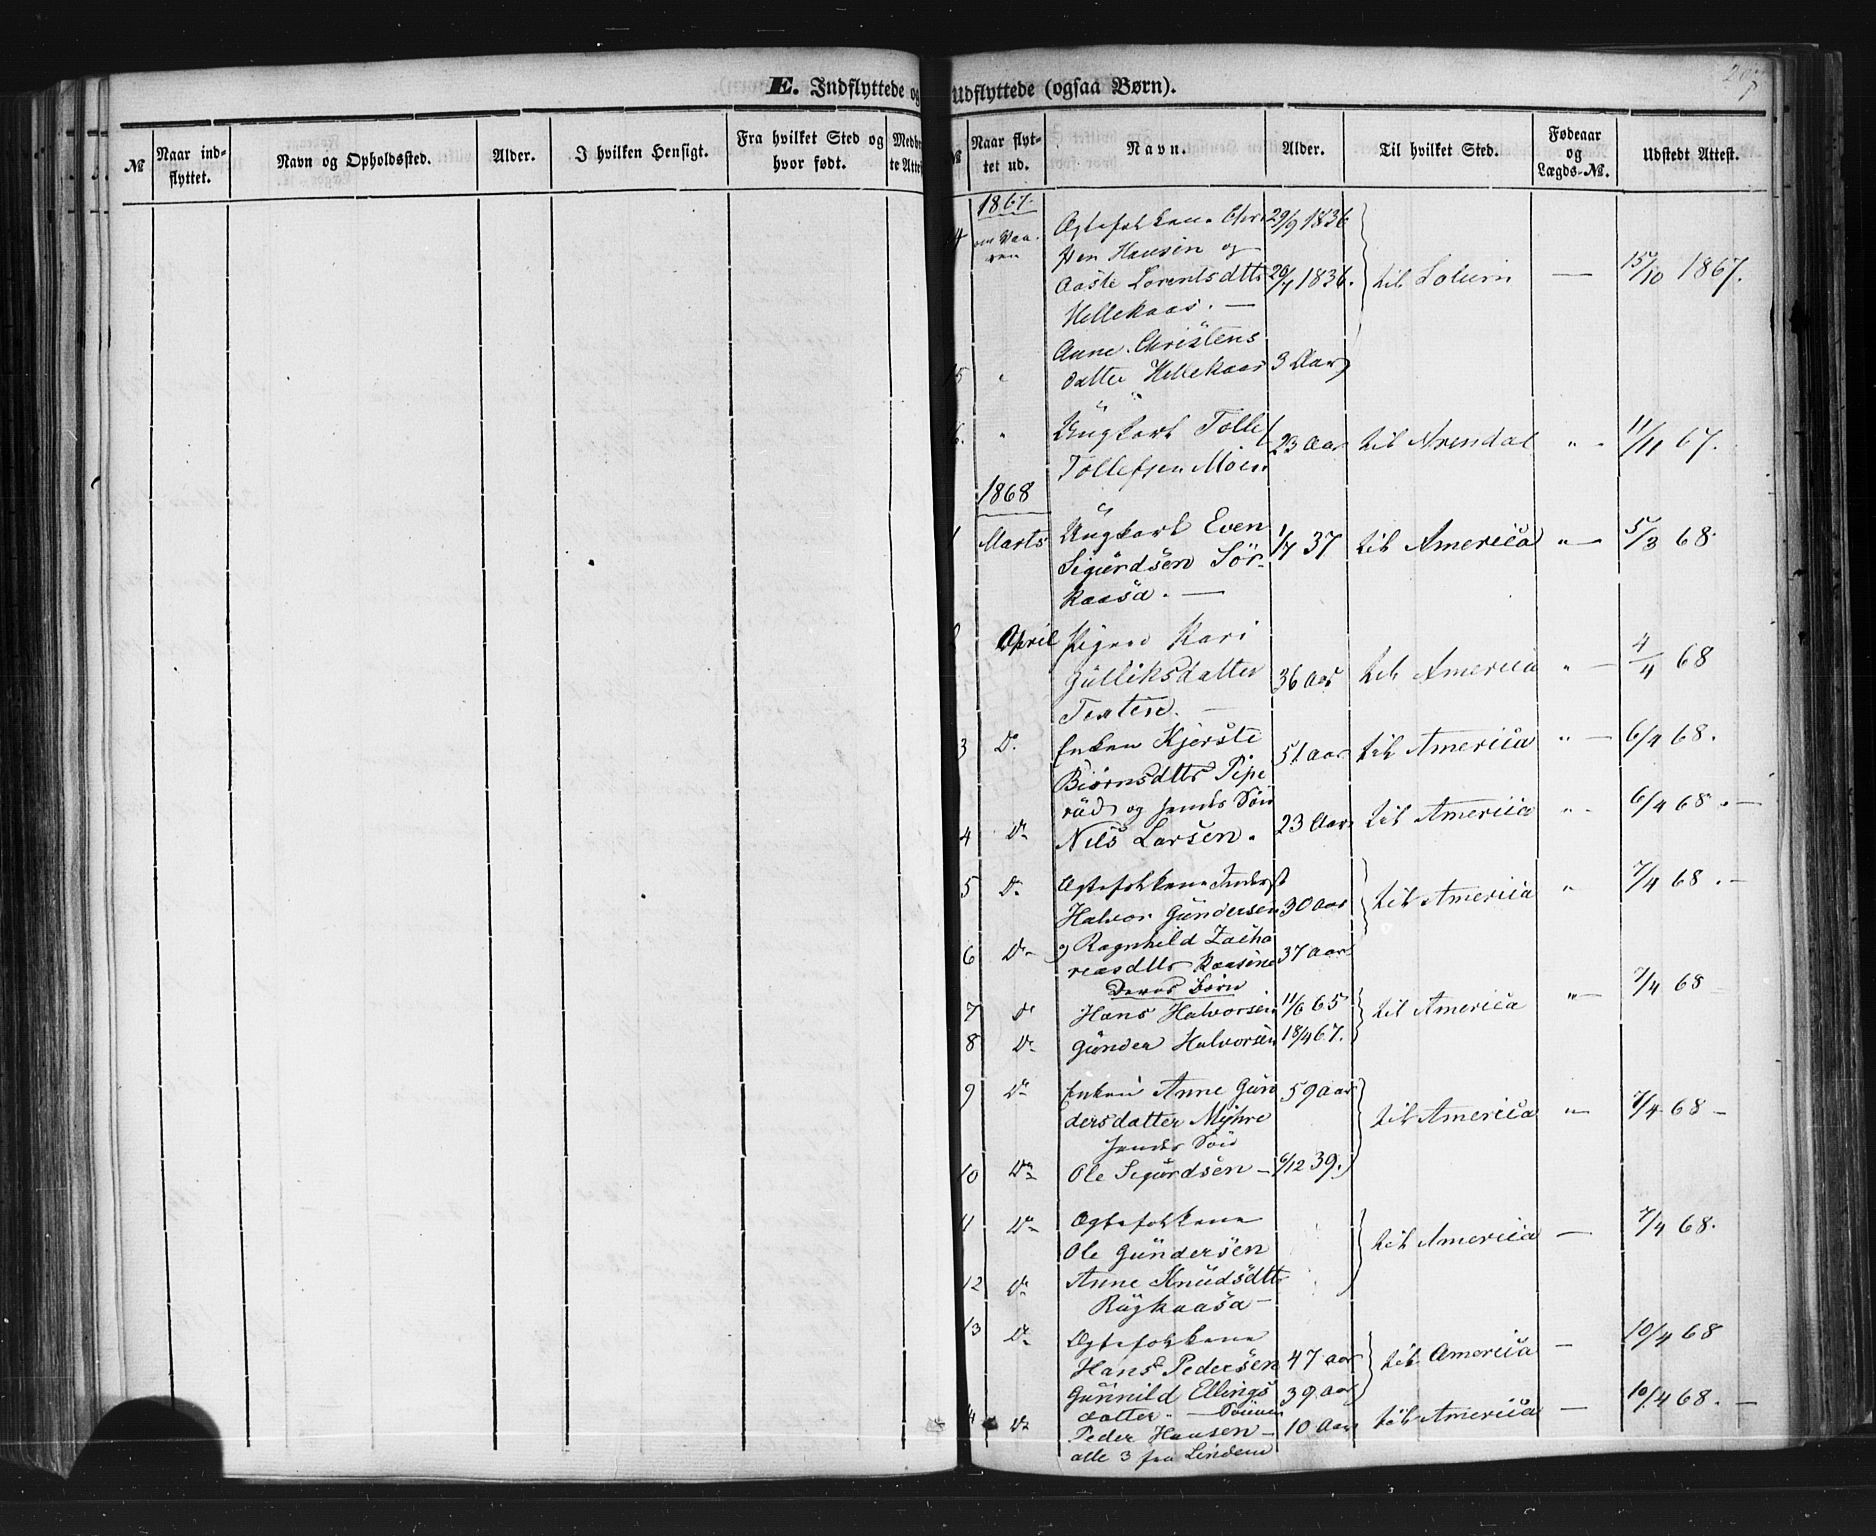 E. Indflyttede og Udflyttede (ogsaa Børn).
№
Naar ind-flyttet.
Navn og Opholdssted.
Alder.
I hvilken Hensigt.
Fra hvilket Sted og hvor født.
Naar flyt-tet ud.
Navn.
Alder.
Til hvilket Sted.
Fødeaar og Lægds-№.
Udstedt Attest.
1867.
14 om Vaa- Ægtefolkene Chri 29/9 1836
ren sten Hansen og
Aaste Lorentsdttr 1836. til — 15/10 1867.
Hellekaas. —
Anne Christens
15 " datter Hellekaas 3 Aar
" Ungkarl Tollef 23 Aar til Arendal " - 11/11 67.
Tollefsen Moen
1868
1 Marts Ungkarl Even 1/7 37 til America " — 5/3 68.
Sigurdsen Sör-
kaasa. —
2 April Pigen Kari
Gulliksdatter 36 Aar til America " — 4/4 68
Texten. —
3 Do. Enken Kjerste 51 Aar til America " — 6/4 68.
Biörnsdttr Pipe
rud og hendes Sön
4 Do Nils Larsen. 23 Aar til America " - 6/4 68. —
5 Do Ægtefolkene Inderst
Halvor Gundersen 30 Aar til America " 7/4 68. —
6 Do og Ragnhild Zacha 37 Aar
reasdttr Kaasene
Deres Börn
7 Do Hans Halvorsen 11/6 65 til America " — 7/4 68 —
8 Do Gunder Halvorsen 18/4 67.
9 Do Enken Anne Gun 59 Aar
dersdatter Myhre til America " — 7/4 68 —
hendes Sön
10 Do Ole Sigurdsen — 6/12 39.
11 Do Ægtefolkene
Ole Gundersen til America — 7/4 68.
12 Do Anne Knudsdttr
Rugkaasa —
13 Do Ægtefolkene
Hans Pedersen 47 aar til America — 10/4 68
Gunnild Ellings 39 aar
datter. — Sönnen
14 Do Peder Hansen — 10 Aar til America — 10/4 68. —
alle 3 fra Lindem